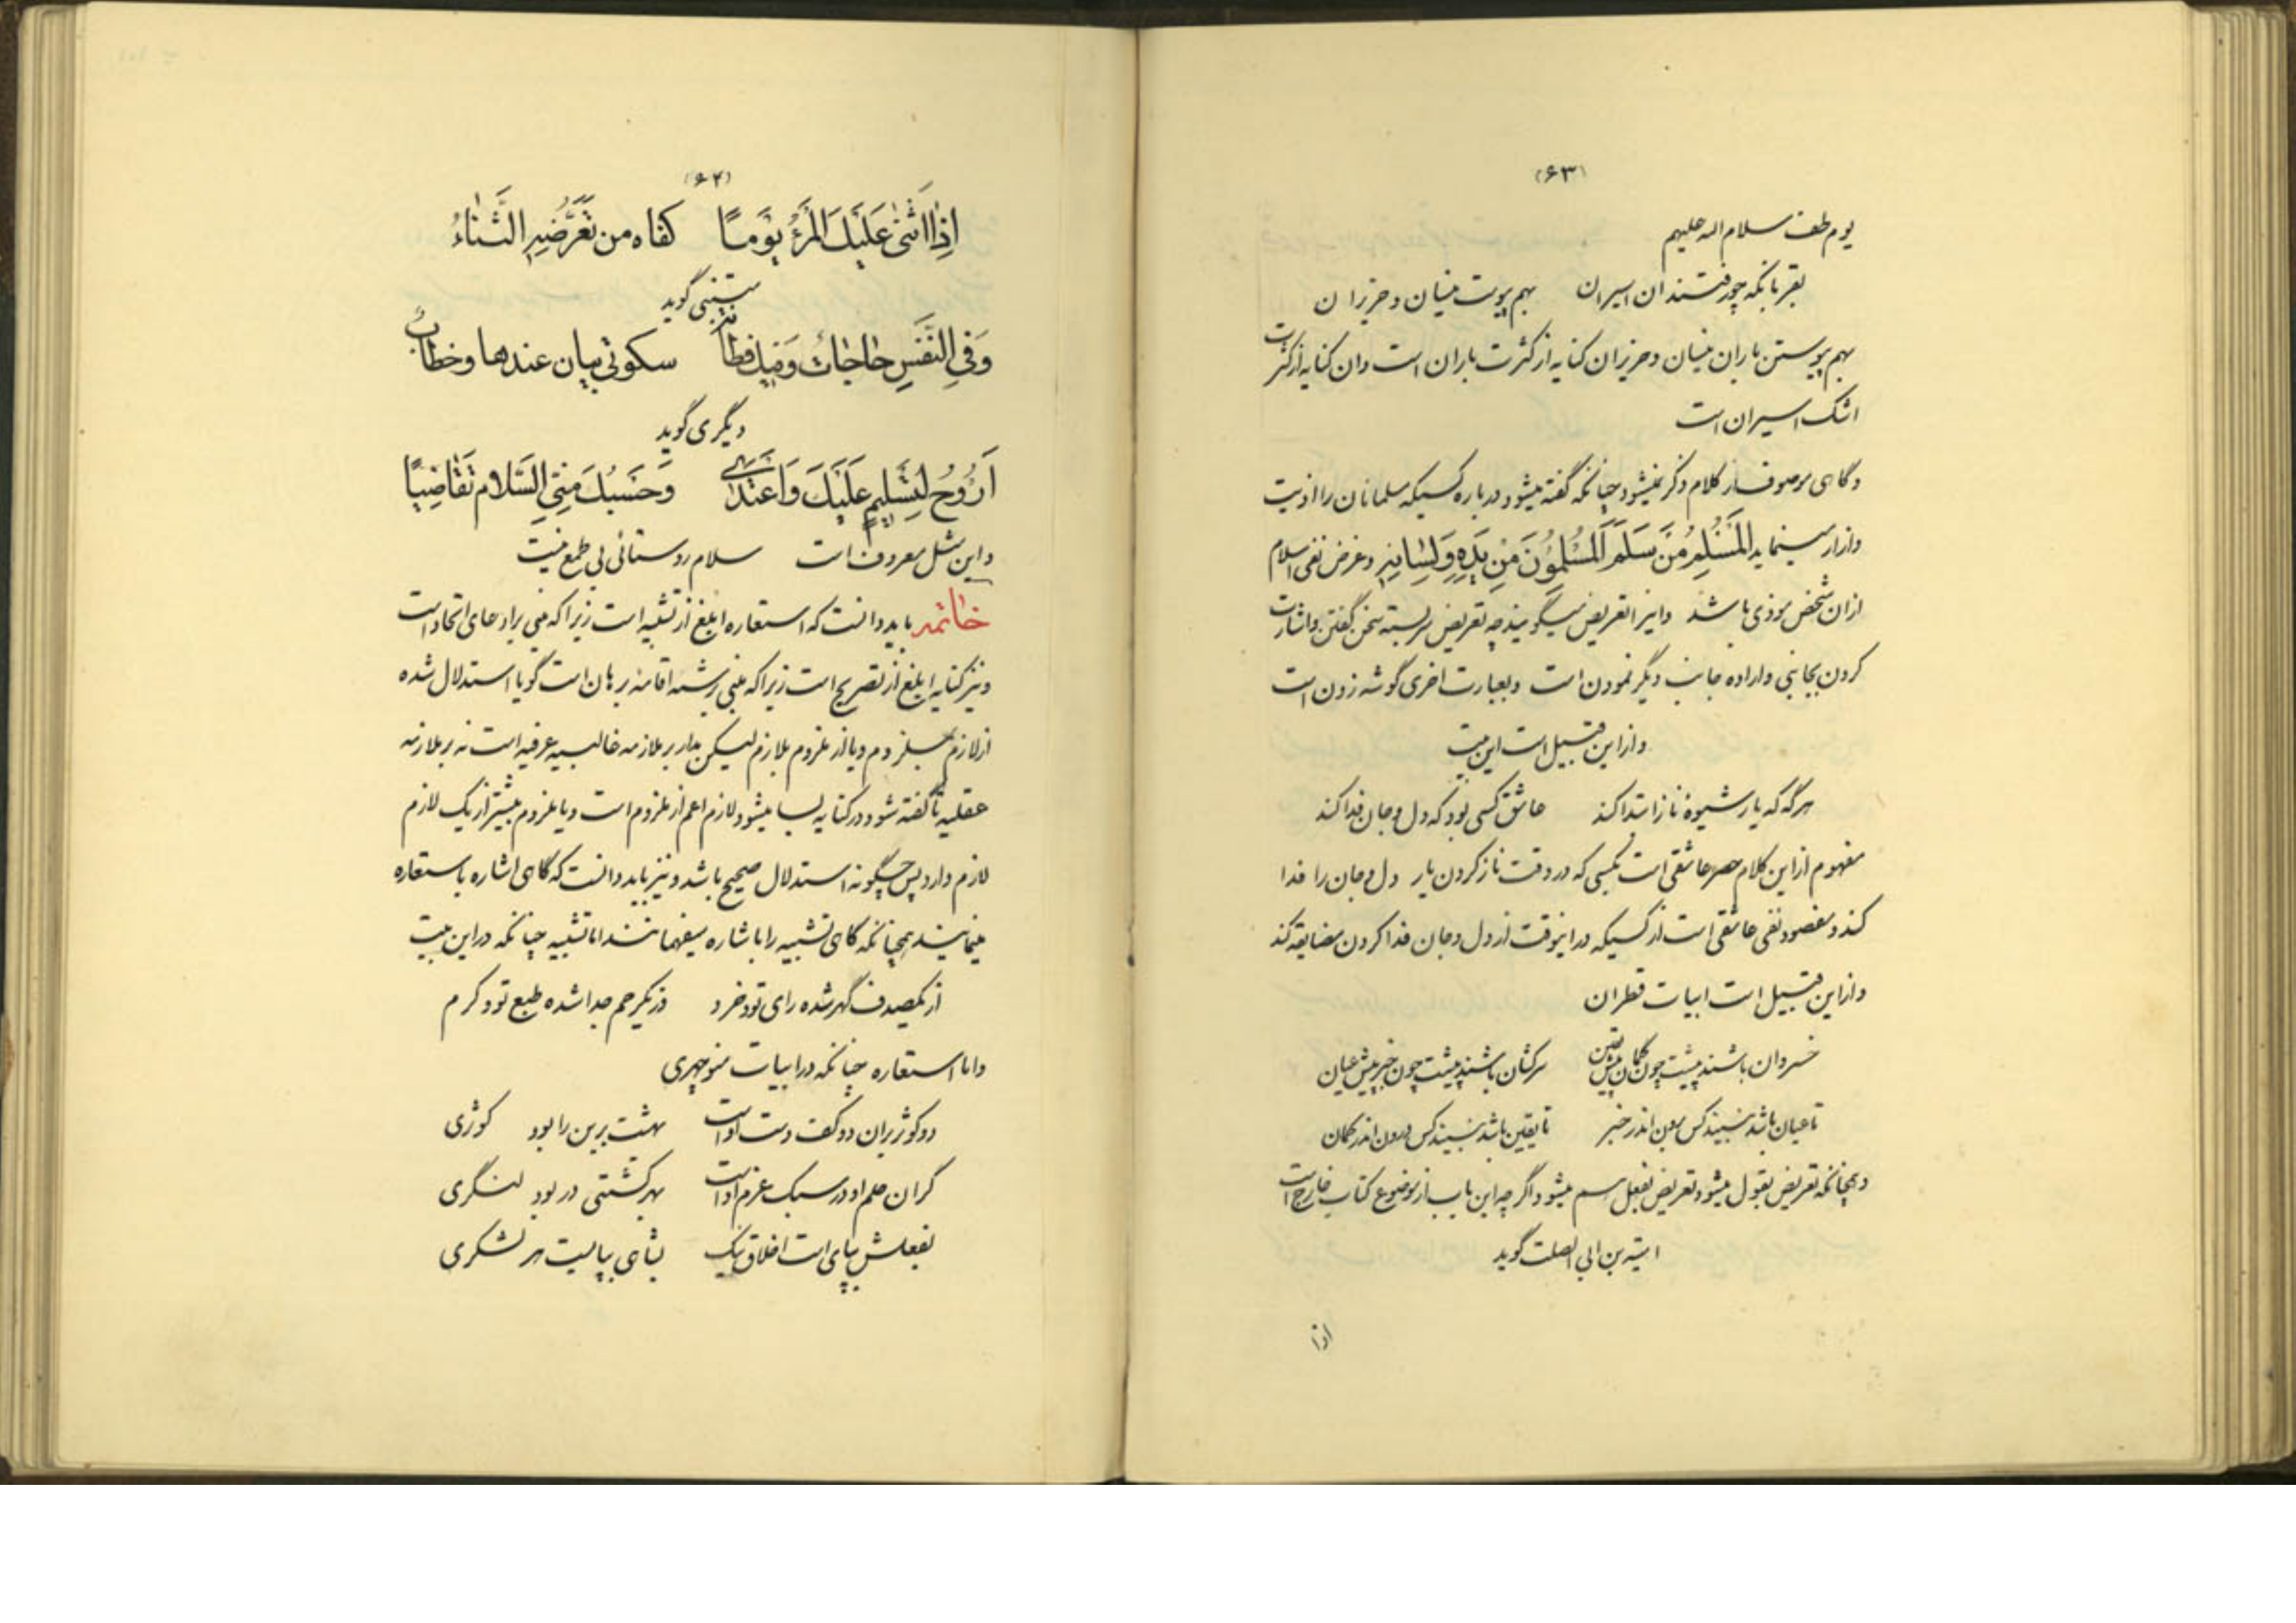 (۶۳)
یوم طف سلام اله علیهم
بهم پیوست نیسان و حزیران
بهم پیوستن باران نیسان و حزیران کنایه از کثرت باران است وان کنایه از کثرت
اشک اسیران است
و گاهی موصوف از کلام ذکر نمیشود چنانکه گفته میشود درباره کسیکه مسلمانان را اذیت
وازار مینماید المسلم من سلم المسلمون من یده ولسانه و غرض نفی اسلام
از ان شخص موذی باشد واینرا تعریض میگویند چه تعریض سربسته سخن گفتن واشارت
کردن بجانبی واراده جانب دیگر نمودن است و بعبارت اخری گوشه زدن است
وازاین قبیل است این بیت
هر گه که یار شیوه ناز ابتدا کند عاشق کسی بود که دل و جان فدا کند
مفهوم از این کلام حصر عاشقی است بکسی که در وقت ناز کردن یار دل و جان را فدا
کند و مقصود نفی عاشقی است از کسیکه در اینوقت از دل و جان فدا کردن مضایقه کند
وازاین قبیل است ابیات قطران
خسروان باشند پیشت چون گمان پیش یقین سرکشان باشند پیشت چون خبر پیش عیان
تا عیان باشد نبیند کس بدون اندر خبر تا یقین باشد نبیند کس درون اندر گمان
و همچنانکه تعریض بقول میشود تعریض بفعل هم میشود اگر چه این باب از موضوع کتاب خارج است
امیة بن ابی الصلت گوید
اذا
(۶۴)
اِذا اَثنی عَلَیكَ المَرءُ یَومًا کفاه من تَعَرُّضِهِ الثَّناءُ
متنبی گوید
وَفِی النَّفسِ حاجاتٌ وَفیكَ فطانة سکوتی بیان عندها وخطابُ
دیگری گوید
اَروُحُ لِتسلیمٍ عَلَیكَ وَاَغتَدی وَحَسبُكَ مِنّی السَّلام تَقاضِیًا
واین مثل معروف است سلام روستائی بی طمع نیست
خاتمه باید دانست که استعاره ابلغ از تشبیه است زیرا که مبنی بر ادعای اتحاد است
و نیز کنایه ابلغ از تصریح است زیرا که مبنی بر شبه اقامه برهان است گویا استدلال شده
از لازم بملزوم و یا از ملزوم بلازم لیکن مدار بر ملازمه غالبیه عرفیه است نه بر ملازمه
عقلیه تا گفته شود در کنایه بسا میشود لازم اعم از ملزوم است و یا ملزوم بیشتر از یک لازم
لازم دارد پس چگونه استدلال صحیح باشد و نیز باید دانست که گاهی اشاره باستعاره
مینمایند همچنانکه گاهی تشبیه را باشاره میفهمانند اما تشبیه چنانکه در این بیت
از یکصدف گهر شده رای تو و خرد وز یکرحم جدا شده طبع تو و کرم
واما استعاره چنانکه در ابیات منوچهری
دو کوثر بران دو کف دست اوست بهشت برین را بود کوثری
گران حلم او در سبک عزم اوست بهر کشتی در بود لنگری
بفعلش بپای است اخلاق نیک بشاهی بپا است هر لشکری